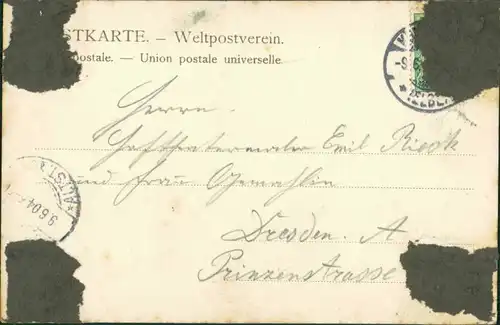 STKARTE. — Weltpostverein.
postale. — Union postale universelle.
Herrn
Hoftheatermaler Emil Rieck
und Frau Gemahlin
Dresden. A
Prinzenstrasse
-9.6
*(ELBE)
*ALTST.*
9.6.04